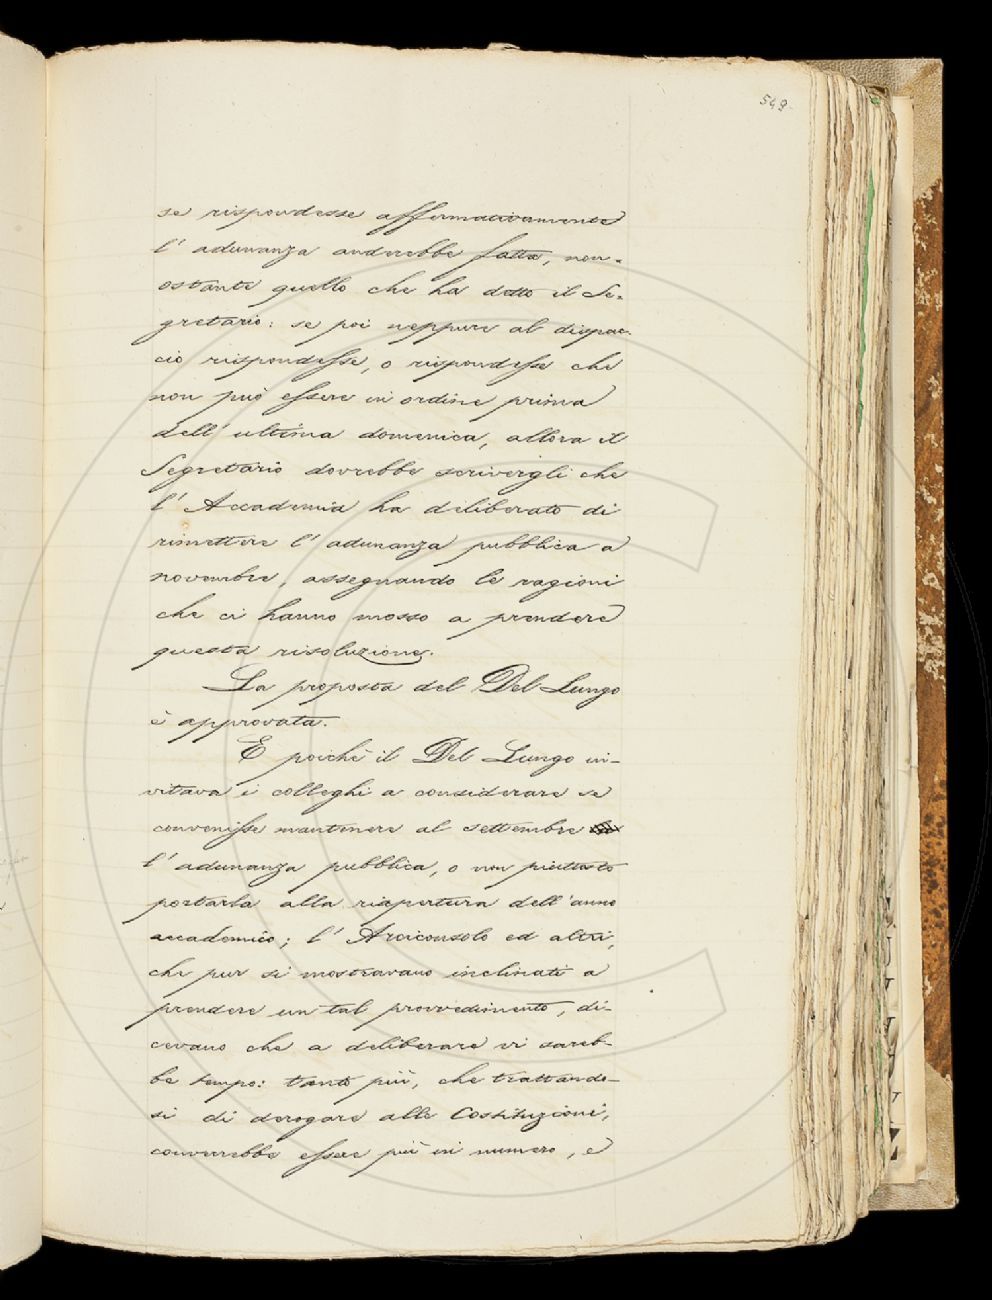 549
se rispondesse affermativamente
l' adunanza anderebbe fatta, non-
ostante quello che ha detto il Se-
gretario: se poi neppure al dispac-
cio rispondesse, o rispondesse che
non può essere in ordine prima
dell' ultima domenica, allora il
Segretario dovrebbe scrivergli che
l' Accademia ha deliberato di
rimettere l' adunanza pubblica a
novembre, assegnando le ragioni
che ci hanno mosso a prendere
questa risoluzione.
La proposta del Del Lungo
è approvata.
E poichè il Del Lungo in-
vitava i colleghi a considerare se
convenisse mantenere al settembre
l' adunanza pubblica, o non piuttosto
portarla alla riapertura dell' anno
accademico; l' Arciconsolo ed altri,
che pur si mostravano inclinati a
prendere un tal provvedimento, di-
cevano che a deliberare vi sareb-
be tempo: tanto più, che trattando-
si di derogare alle Costituzioni,
converrebbe essere più in numero, e